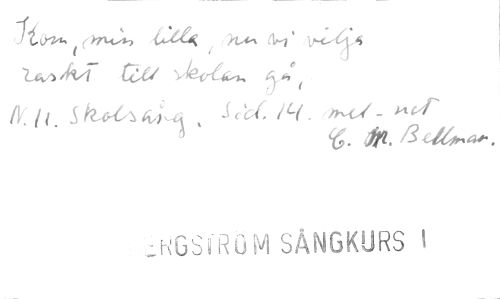 Kom, min lilla, nu vi vilja
raskt till skolan gå,
N. 11. Skolsång. Sid. 14. mel-not
C. M. Bellman.
BERGSTRÖM SÅNGKURS I